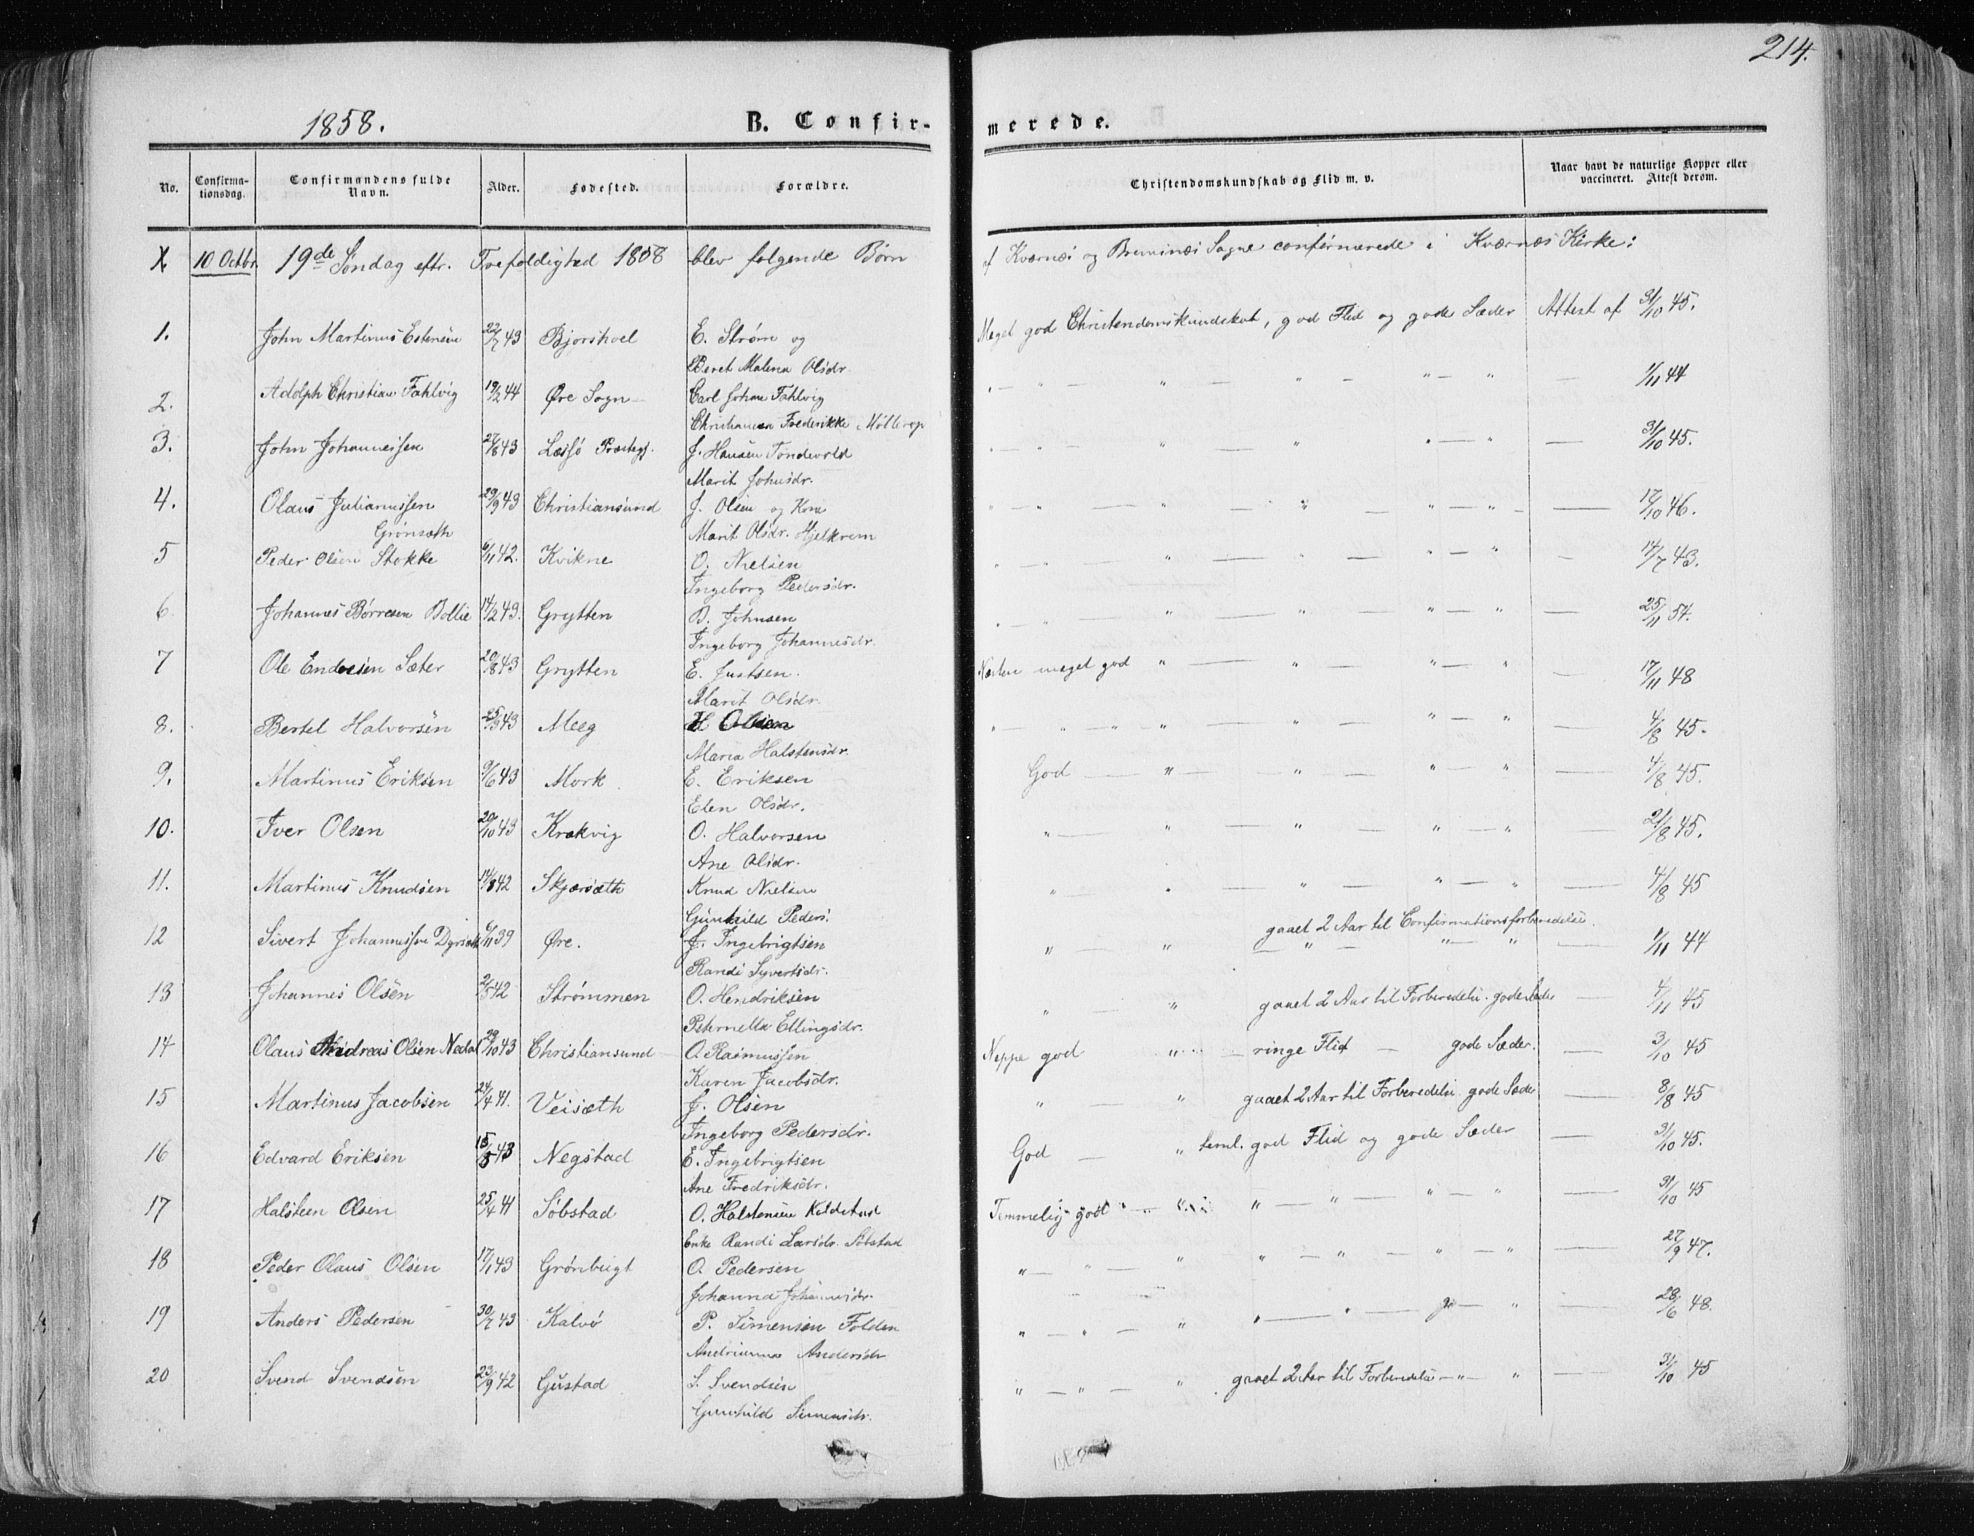 214.
1858.
B. Confirmerede.
No.
Confirmationsdag.
Confirmandens fulde Navn.
Alder.
Fødested.
Forældre.
Christendomskundskab og Flid m. v.
Naar havt de naturlige Kopper eller vaccineret. Attest derom.
X 10 Octbr. 19de Søndag eftr. Trefoldighed 1858 blev følgende Børn af Kværnæs og Bremsnæs Sogne confirmerede i Kværnæs Kirke:
1. John Martinus Estensen 22/7 43 Bjørshoel E. Strøm og Meget god Christendomskundskab, god Flid og gode Sæder Attest af 31/10 45.
Beret Malena Olsdr.
2. Adolph Christian Fahlvig 19/2 44 Øre Sogn Carl Johan Fahlvig " 1/11 44
Christianea Frederikke Møllerop
3. John Johannessen 27/8 43 Læssø Præstegj. J. Hansen Tondevold " 31/10 45.
Marit Johnsdr.
4. Olaus Julianussen 29/9 43 Christiansund J. Olsen og Kone " 17/10 46.
Grønsæth Marit Olsdr. Hjelkrem
5 Peder Olsen Stokke 6/11 42. Kvikne O. Nielsen " 14/7 43.
Ingeborg Pedersdr.
6 Johannes Børresen Bollie 14/2 43. Grytten B. Johnsen " 25/11 54.
Ingeborg Johannesdr.
7 Ole Endresen Sæter 20/8 43 Grytten E. Justsen. Næsten meget god " 17/11 48
Marit Olsdr.
8. Bertel Halvorsen 25/3 43 Meeg H Olsen " 4/8 45.
Maria Halstensdr.
9. Martinus Eriksen 9/6 43 Mork E. Eriksen God " 4/8 45.
Elen Olsdr.
10. Iver Olsen 20/10 43 Krækvig O. Halvorsen " 21/8 45.
Ane Olsdr.
11. Martinus Knudsen 14/8 42 Skjørsæth Knud Nielsen " 4/8 45
Gunhild Peders.
12 Sivert Johannessen Dyrsæth 6/11 39 Øre. J. Ingebrigtsen " gaaet 2 Aar til Confirmationsforberedelse. 1/11 44
Randi Syvertsdr.
13 Johannes Olsen 2/5 42 Strømmen O. Hendriksen " gaaet 2 Aar til Forberedelse. gode Sæder 4/11 45
Peternella Ellingsdr.
14 Olaus Andreas Olsen Nedal 29/10 43 Christiansund O. Rasmussen Neppe god " ringe Flid — gode Sæder. 3/10 45
Karen Jacobsdr.
15 Martinus Jacobsen 24/4 41. Veisæth J. Olsen " gaaet 2 Aar til Forberedelse. gode Sæder 8/8 45
Ingeborg Pedersdr.
16 Edvard Eriksen 15/5 43 Negstad E. Ingebrigtsen God — " teml. god Flid og gode Sæder 31/10 45.
Ane Fredriksdr.
17 Halsteen Olsen 25/4 41 Søbstad O. Halstensen Koldstad Temmelig godt " 31/10 45
Enke Randi Larsdr. Søbstad
18 Peder Olaus Olsen 17/1 43 Grønbugt O. Pedersen " 27/9 47.
Johanna Johannesdr.
19 Anders Pedersen 30/7 43 Kalvø P. Simensen Folden " 28/6 48.
Andrianna Andersdr
20 Svend Svendsen 23/9 42 Gustad S. Svendsen " gaaet 2 Aar til Forberedelse " 31/10 45
Gunhild Simensdr.